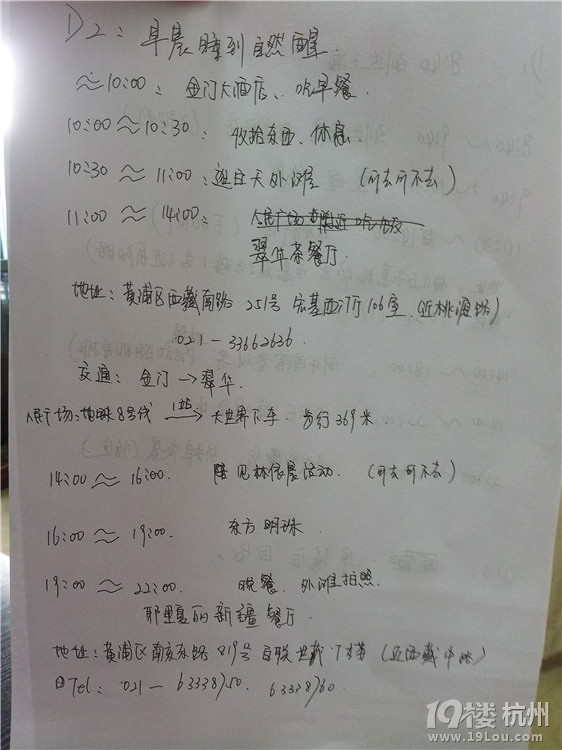 D2: 早晨睡到自然醒.
≈10:00: 金门大酒店、吃早餐.
10:00≈10:30: 收拾东西、休息.
10:30≈11:00: 天外滩 (可去可不去)
11:00≈14:00: 人民广场 附近 吃饭
翠华茶餐厅.
地址: 黄浦区西藏南路 251号 宏基西门厅106室 (近桃源路)
021-33662636
交通: 金门→翠华.
人民广场:地铁8号线 1站→ 大世界下车. 步行369米.
14:00≈16:00. 陪见林依晨活动. (可去可不去)
16:00≈19:00. 东方明珠.
19:00≈22:00. 晚餐. 外滩拍照.
耶里夏丽新疆餐厅.
地址: 黄浦区南京东路 819号 百联世茂 7楼 (近西藏中路)
Tel: 021-63338750. 63338760.
19楼 杭州
www.19Lou.com